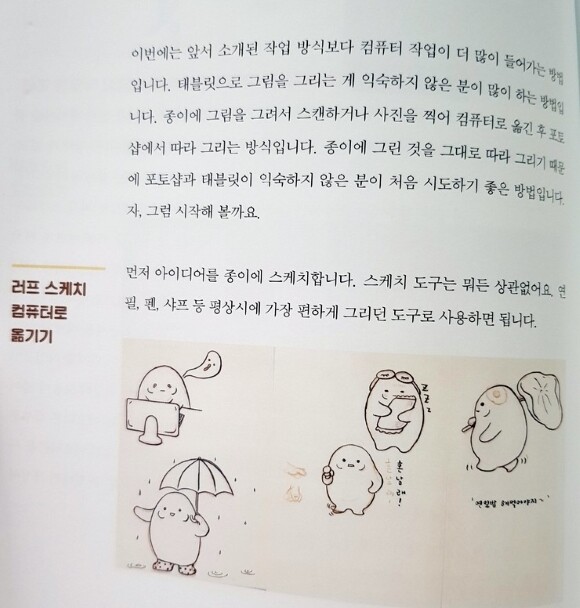 이번에는 앞서 소개된 작업 방식보다 컴퓨터 작업이 더 많이 들어가는 방법
입니다. 태블릿으로 그림을 그리는 게 익숙하지 않은 분이 많이 하는 방법입
니다. 종이에 그림을 그려서 스캔하거나 사진을 찍어 컴퓨터로 옮긴 후 포토
샵에서 따라 그리는 방식입니다. 종이에 그린 것을 그대로 따라 그리기 때문
에 포토샵과 태블릿이 익숙하지 않은 분이 처음 시도하기 좋은 방법입니다.
자, 그럼 시작해 볼까요.
러프 스케치
컴퓨터로
옮기기
먼저 아이디어를 종이에 스케치합니다. 스케치 도구는 뭐든 상관없어요. 연
필, 펜, 샤프 등 평상시에 가장 편하게 그리던 도구로 사용하면 됩니다.
z z z
혼날래!